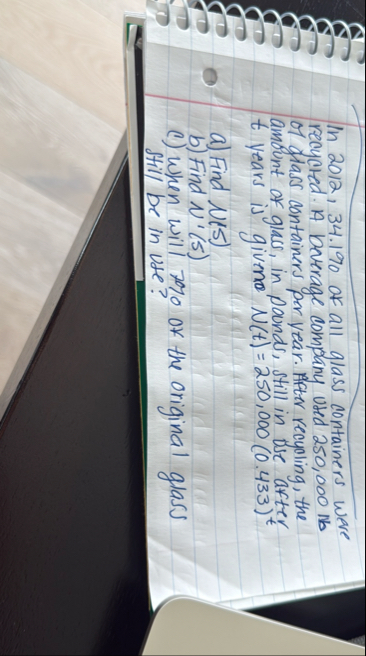 In 2012, 34.1% of all glass containers were
recycled. A beverage company used 250,000 lb
of glass containers per year. After recycling, the
amount of glass, in pounds, still in use after
t years is given N(t) = 250,000 (0.433)^t
a) Find N(5)
b) Find N'(5)
c) When will 7% of the original glass
still be in use?